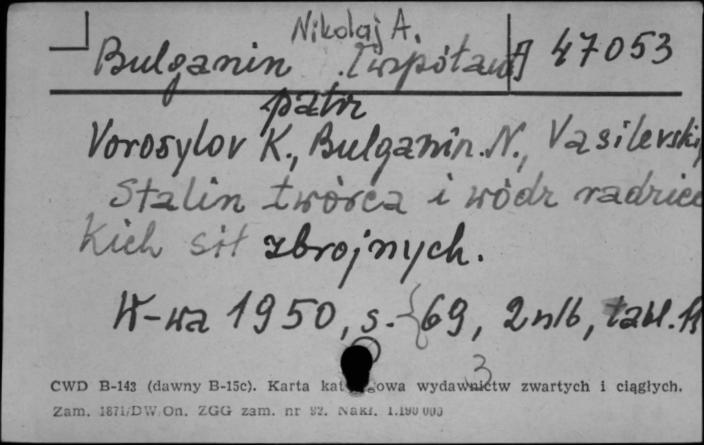 Nikolaj A.
Bulganin [współaut] 47053
patrz
Vorosylov K., Bulganin. N., Vasilevskij
Stalin twórca i wódz radziec
kich sił zbrojnych.
W-wa 1950, s. {69, 2 nlb, tabl. 11
3
CWD B-143 (dawny B-15c). Karta katalogowa wydawnictw zwartych i ciągłych.
Zam. 1871/DW/On. ZGG zam. nr 92. Nakł. 1.190 000